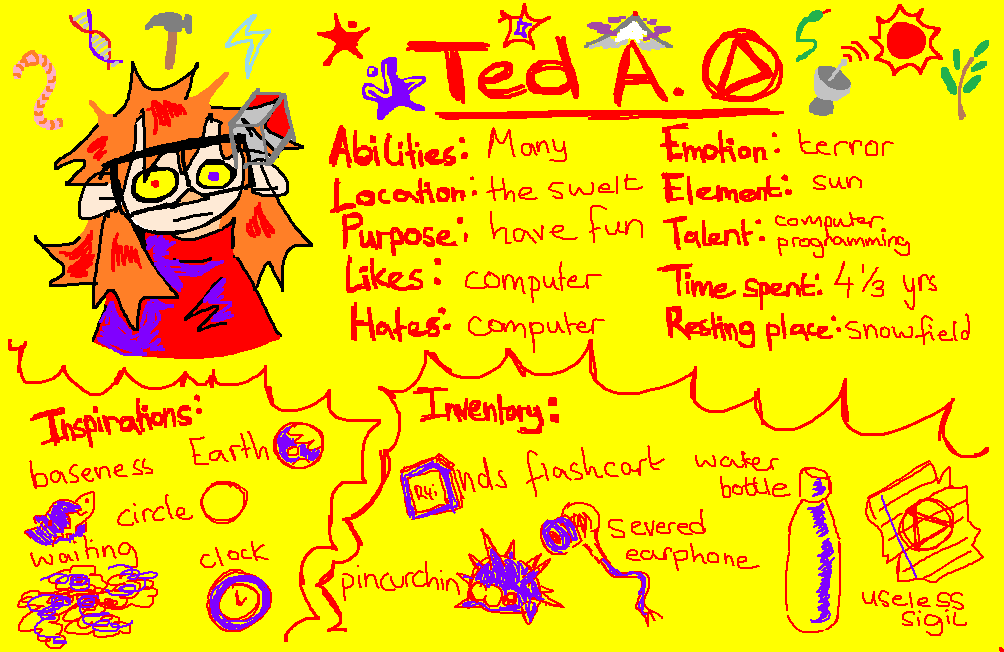 Ted A.
Abilities: Many
Location: the swelt
Purpose: have fun
Likes: computer
Hates: computer
Emotion: terror
Element: sun
Talent: computer
programming
Time spent: 4 1/3 yrs
Resting place: snowfield
Inspirations:
Earth
baseness
circle
waiting
clock
Inventory:
R4i
nds flashcart
water
bottle
severed
earphone
pincurchin
useless
sigil